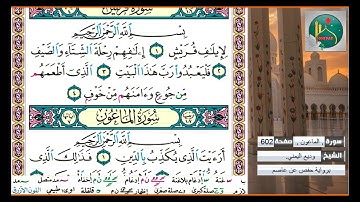 سورة قريش
بِسْمِ اللَّهِ الرَّحْمَٰنِ الرَّحِيمِ
لِإِيلَافِ قُرَيْشٍ ١ إِۦلَافِهِمْ رِحْلَةَ الشِّتَاءِ وَالصَّيْفِ
٢ فَلْيَعْبُدُوا رَبَّ هَٰذَا الْبَيْتِ ٣ الَّذِي أَطْعَمَهُم
مِّن جُوعٍ وَءَامَنَهُم مِّنْ خَوْفٍ ٤
سُورَةُ الْمَاعُونِ
بِسْمِ اللَّهِ الرَّحْمَٰنِ الرَّحِيمِ
أَرَءَيْتَ الَّذِي يُكَذِّبُ بِالدِّينِ ١ فَذَٰلِكَ الَّذِي
سورة الماعون , صفحة 602
الشيخ وديع اليمني,
برواية حفص عن عاصم